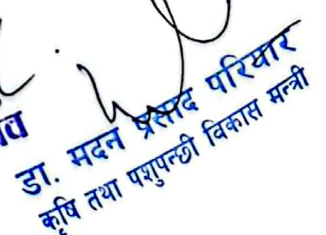 व
डा. मदन प्रसाद परियार
कृषि तथा पशुपन्छी विकास मन्त्री